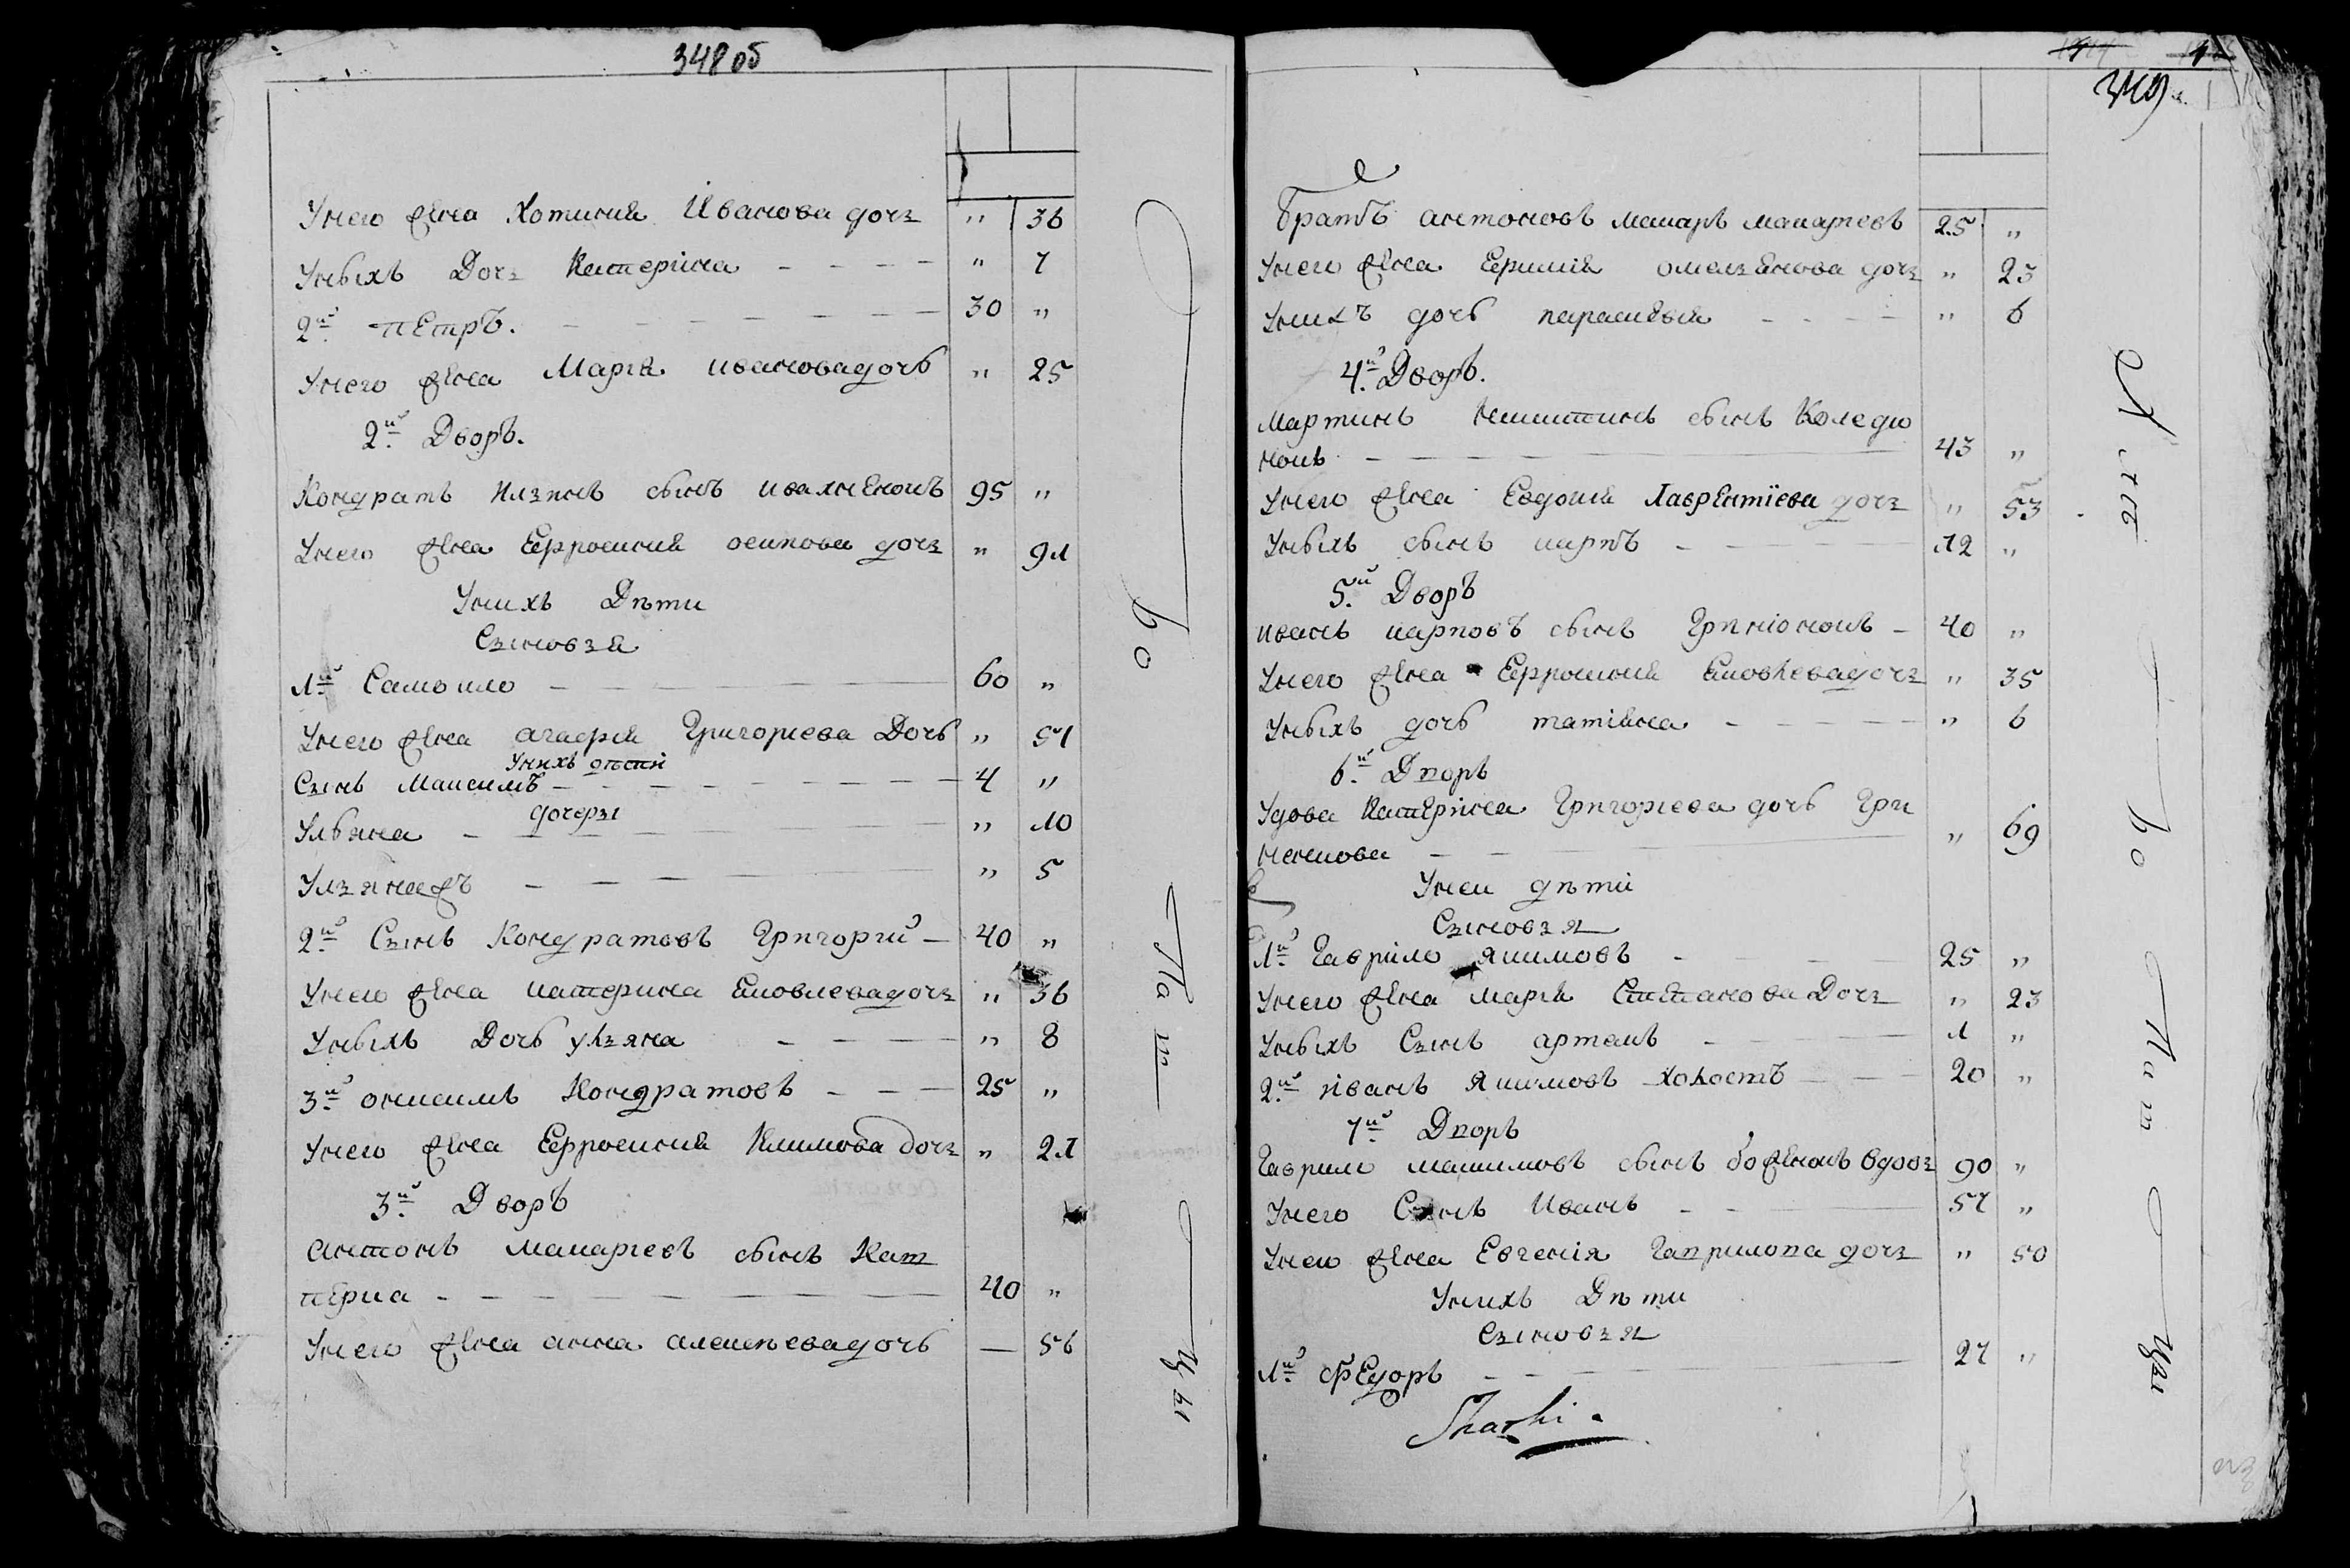 348 об
Унего жена Хотиния Иванова дочъ " 36
Унѣыхъ Дочъ Катеріна " 7
2й пЕтръ. 30 "
Унего жена Марія ивановадочь " 25
2й Дворъ.
Кондратъ Илъинъ сынъ ивахнЕнокъ 95 "
Унего жена Ефросиния осипова дочъ " 91
Унихъ Дѣти
Съіновъя
1й Самоило 60 "
Унего жена агафия Григориева Дочь " 51
Унихъ дѣтй
Съінъ Максимъ 4 "
дочеръі
Ульяна " 10
Улъяна жъ " 5
2й Съінъ Кондратовъ Григорий 40 "
Унего жена катерина Яковлевадочъ " 36
Унѣыхъ Дочь улъяна " 8
3й онисимъ Кондратовъ 25 "
Унего жена Ефросиния Климова дочъ " 21
3й Дворъ
Антонъ макариевъ сынъ Кат
пЕриа 40 "
Унего жена анна алексѣевадочь — 56
Во
Па
т
Ц
ы
349
братъ антоновъ макаръ макариевъ 25 "
Унего жена омелъянова дочъ " 23
Унихъ дочь парасківия " 6
4й Дворъ.
Мартинъ Никитинъ сынъ Коледю
нокъ 43 "
Унего жена Евдокия ЛаврЕнтіева дочъ " 53
Унѣыхъ сынъ карпъ 12 "
5й Дворъ
иванъ карповъ сынъ Гринюнокъ 40 "
Унего жена Ефросиния Яковлевадочъ " 35
Унѣыхъ дочь татіяна " 6
6й Дворъ
Удова КатЕріна Григориева дочь Гри
ненкова " 69
Унеи дѣтй
Съіновъя
1й Гавріло Якимовъ 25 "
Унего жена Мария Степанова Дочъ " 23
Унѣыхъ Съінъ артемъ 1 "
2й иванъ Якимовъ холостъ 20 "
7й Дворъ
Гаврило макимовъ сынъ божЕнокъ вдовъ 90 "
Унего Съінъ Иванъ 57 "
Унего жена Евгенія Гаврилова дочъ " 50
Унихъ Дѣти
Съіновъя
1й фЕдоръ 27 "
Во
Па
т
Цы